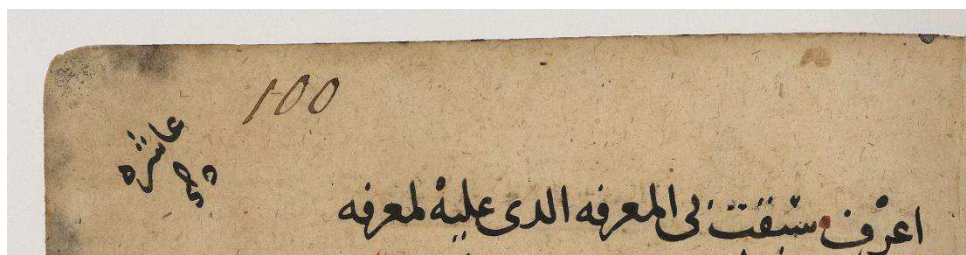 100
عاشره
اعرف وسبقت لى المعرفه الدى عليه لمعرفه